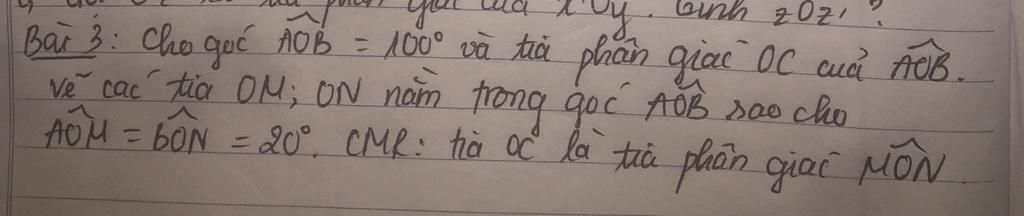 phân giác của xOy. Tính zOz' ?
Bài 3: Cho góc AÔB = 100° và tia phân giác OC của AÔB.
Vẽ các tia OM; ON nằm trong góc AÔB sao cho
AÔM = BÔN = 20°. CMR: tia OC là tia phân giác MÔN